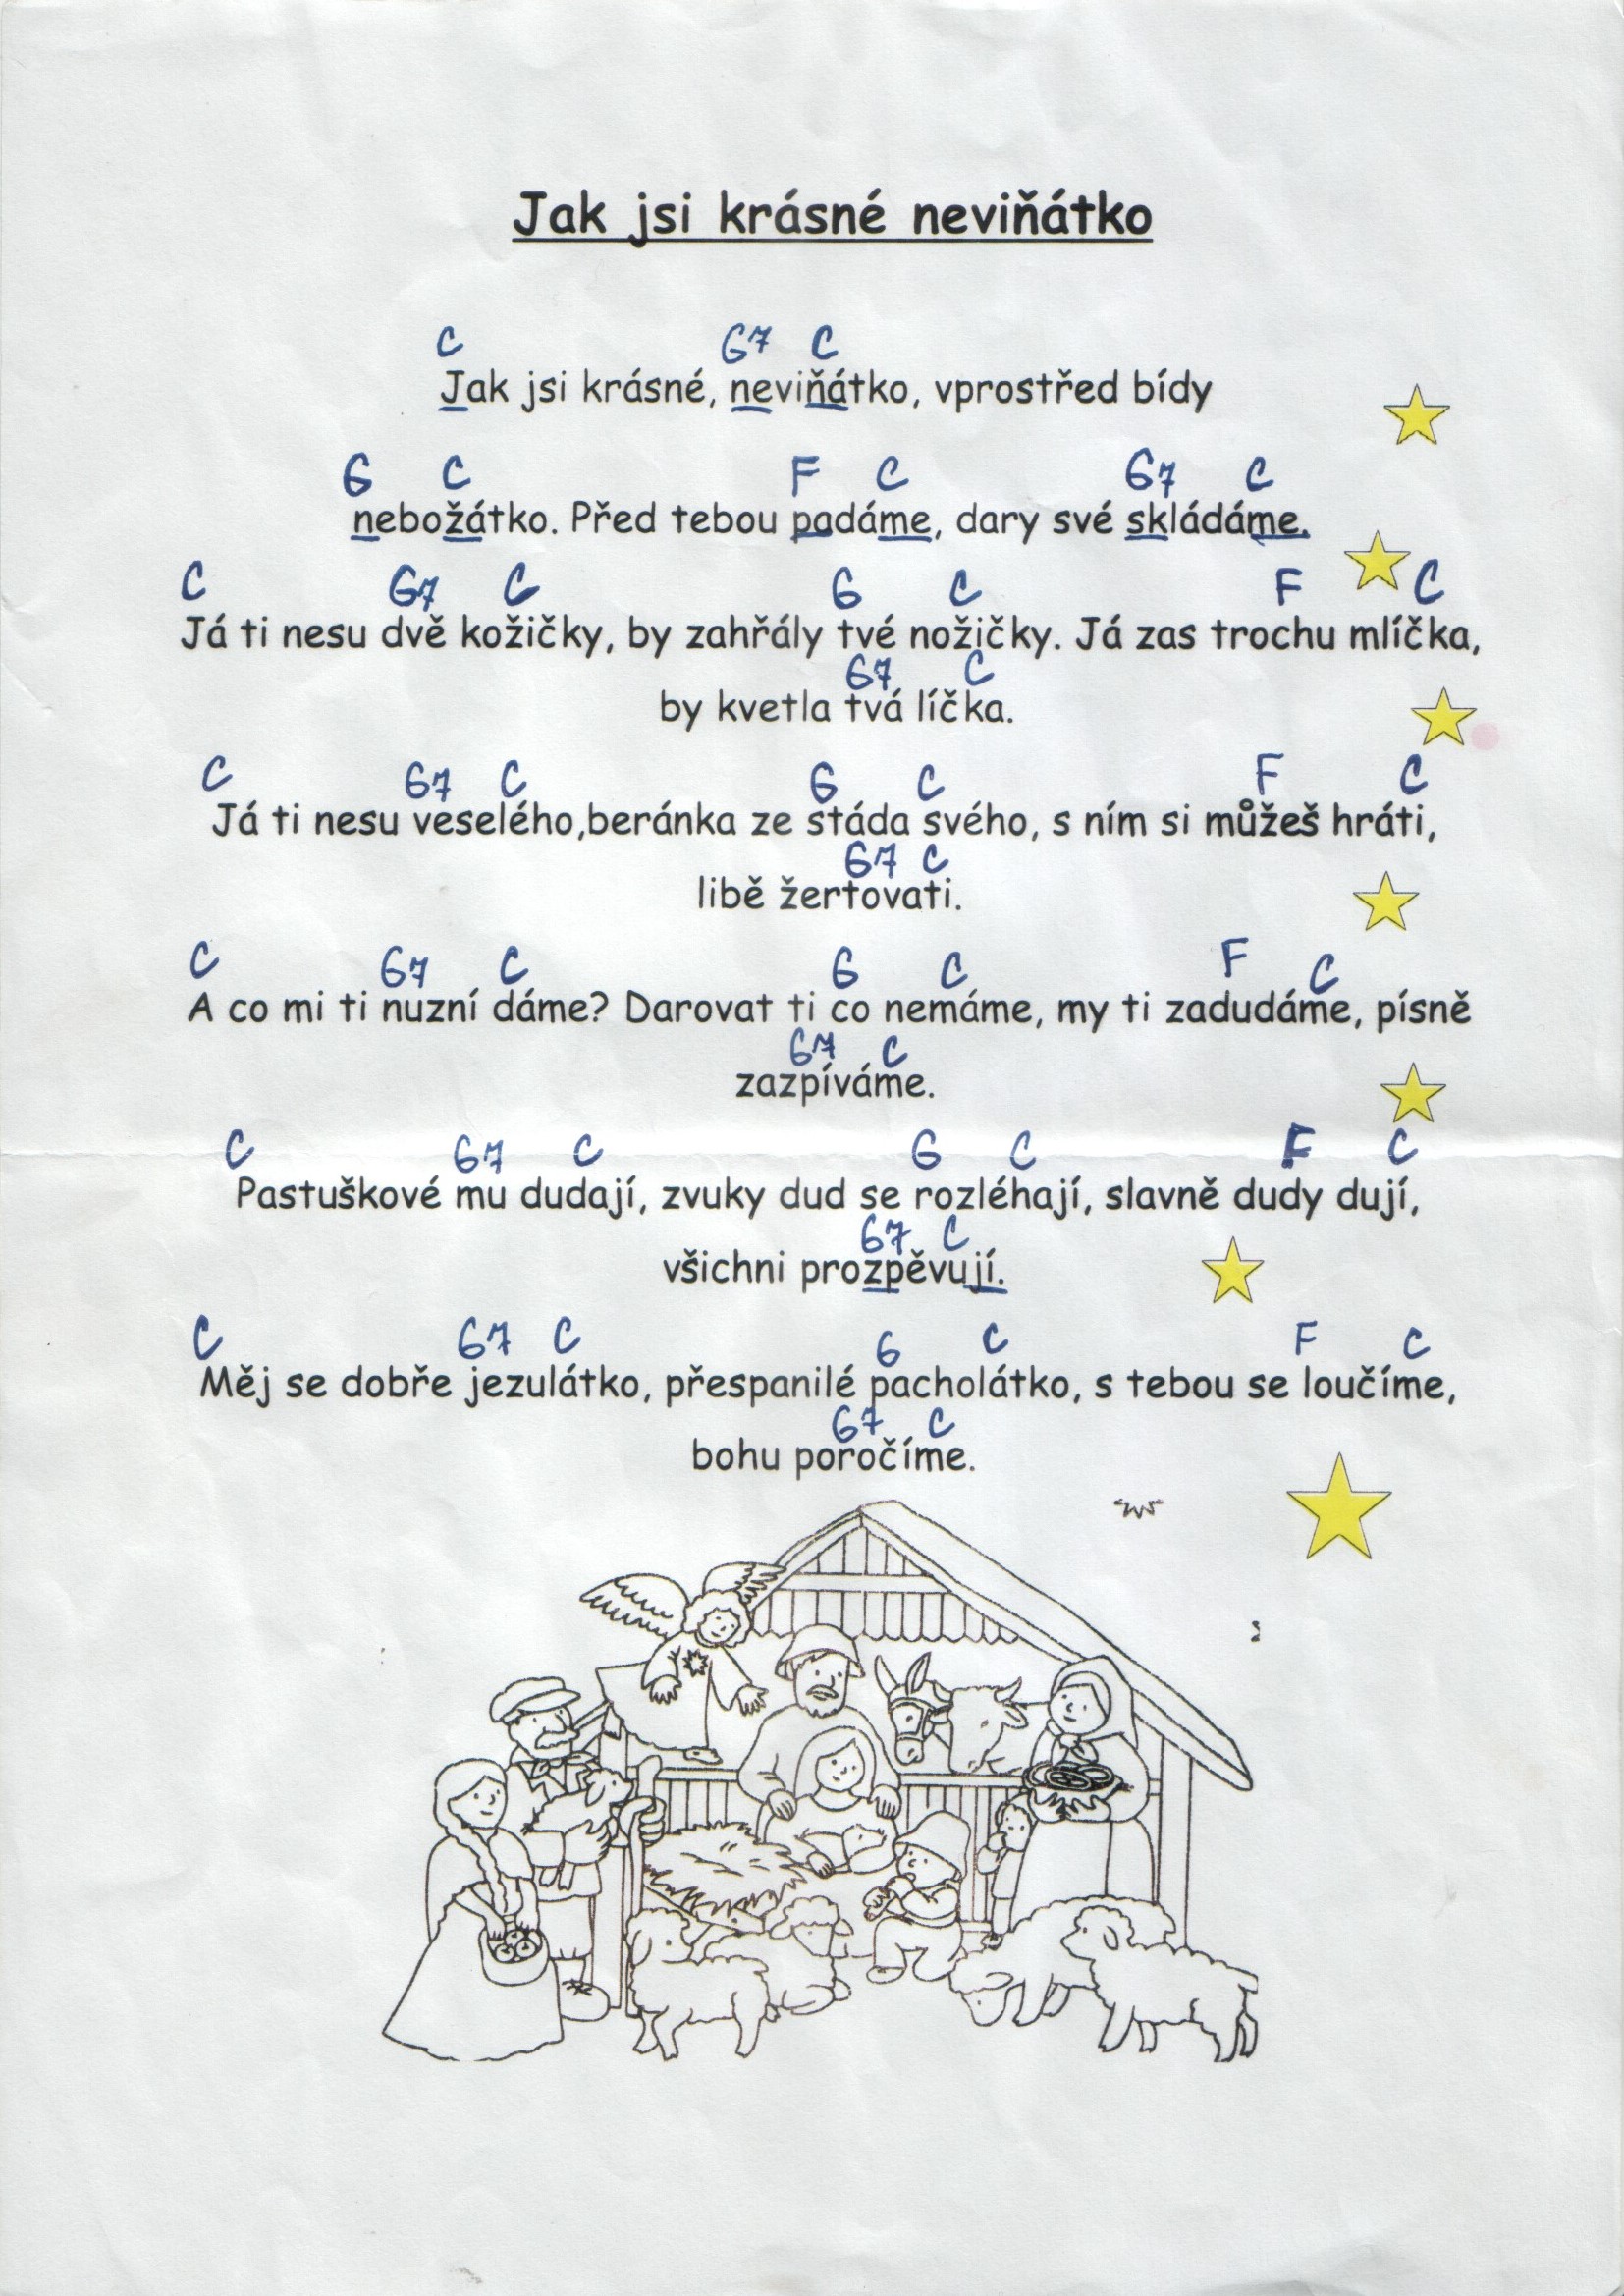 Jak jsi krásné neviňátko
C G7 C
Jak jsi krásné, neviňátko, vprostřed bídy
G C F C G7 C
nebožátko. Před tebou padáme, dary své skládáme.
C G7 C G C F C
Já ti nesu dvě kožičky, by zahřály tvé nožičky. Já zas trochu mlíčka,
G7 C
by kvetla tvá líčka.
C G7 C G C F C
Já ti nesu veselého,beránka ze stáda svého, s ním si můžeš hráti,
G7 C
libě žertovati.
C G7 C G C F C
A co mi ti nuzní dáme? Darovat ti co nemáme, my ti zadudáme, písně
G7 C
zazpíváme.
C G7 C G C F C
Pastuškové mu dudají, zvuky dud se rozléhají, slavně dudy dují,
G7 C
všichni prozpěvují.
C G7 C G C F C
Měj se dobře jezulátko, přespanilé pacholátko, s tebou se loučíme,
G7 C
bohu poročíme.